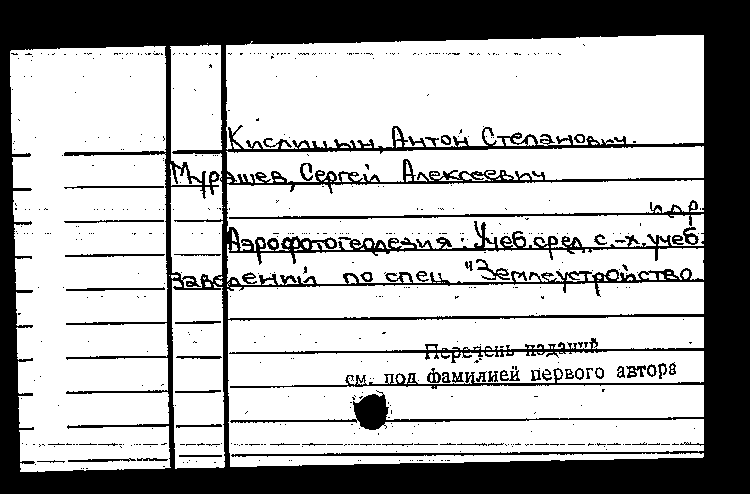 Кислицын, Антон Степанович.
Мурашев, Сергей Алексеевич
и др.
Аэрофотогеодезия: Учеб. сред. с.-х. учеб.
заведений по спец. "Землеустройство
Перечень изданий
см. под фамилией первого автора